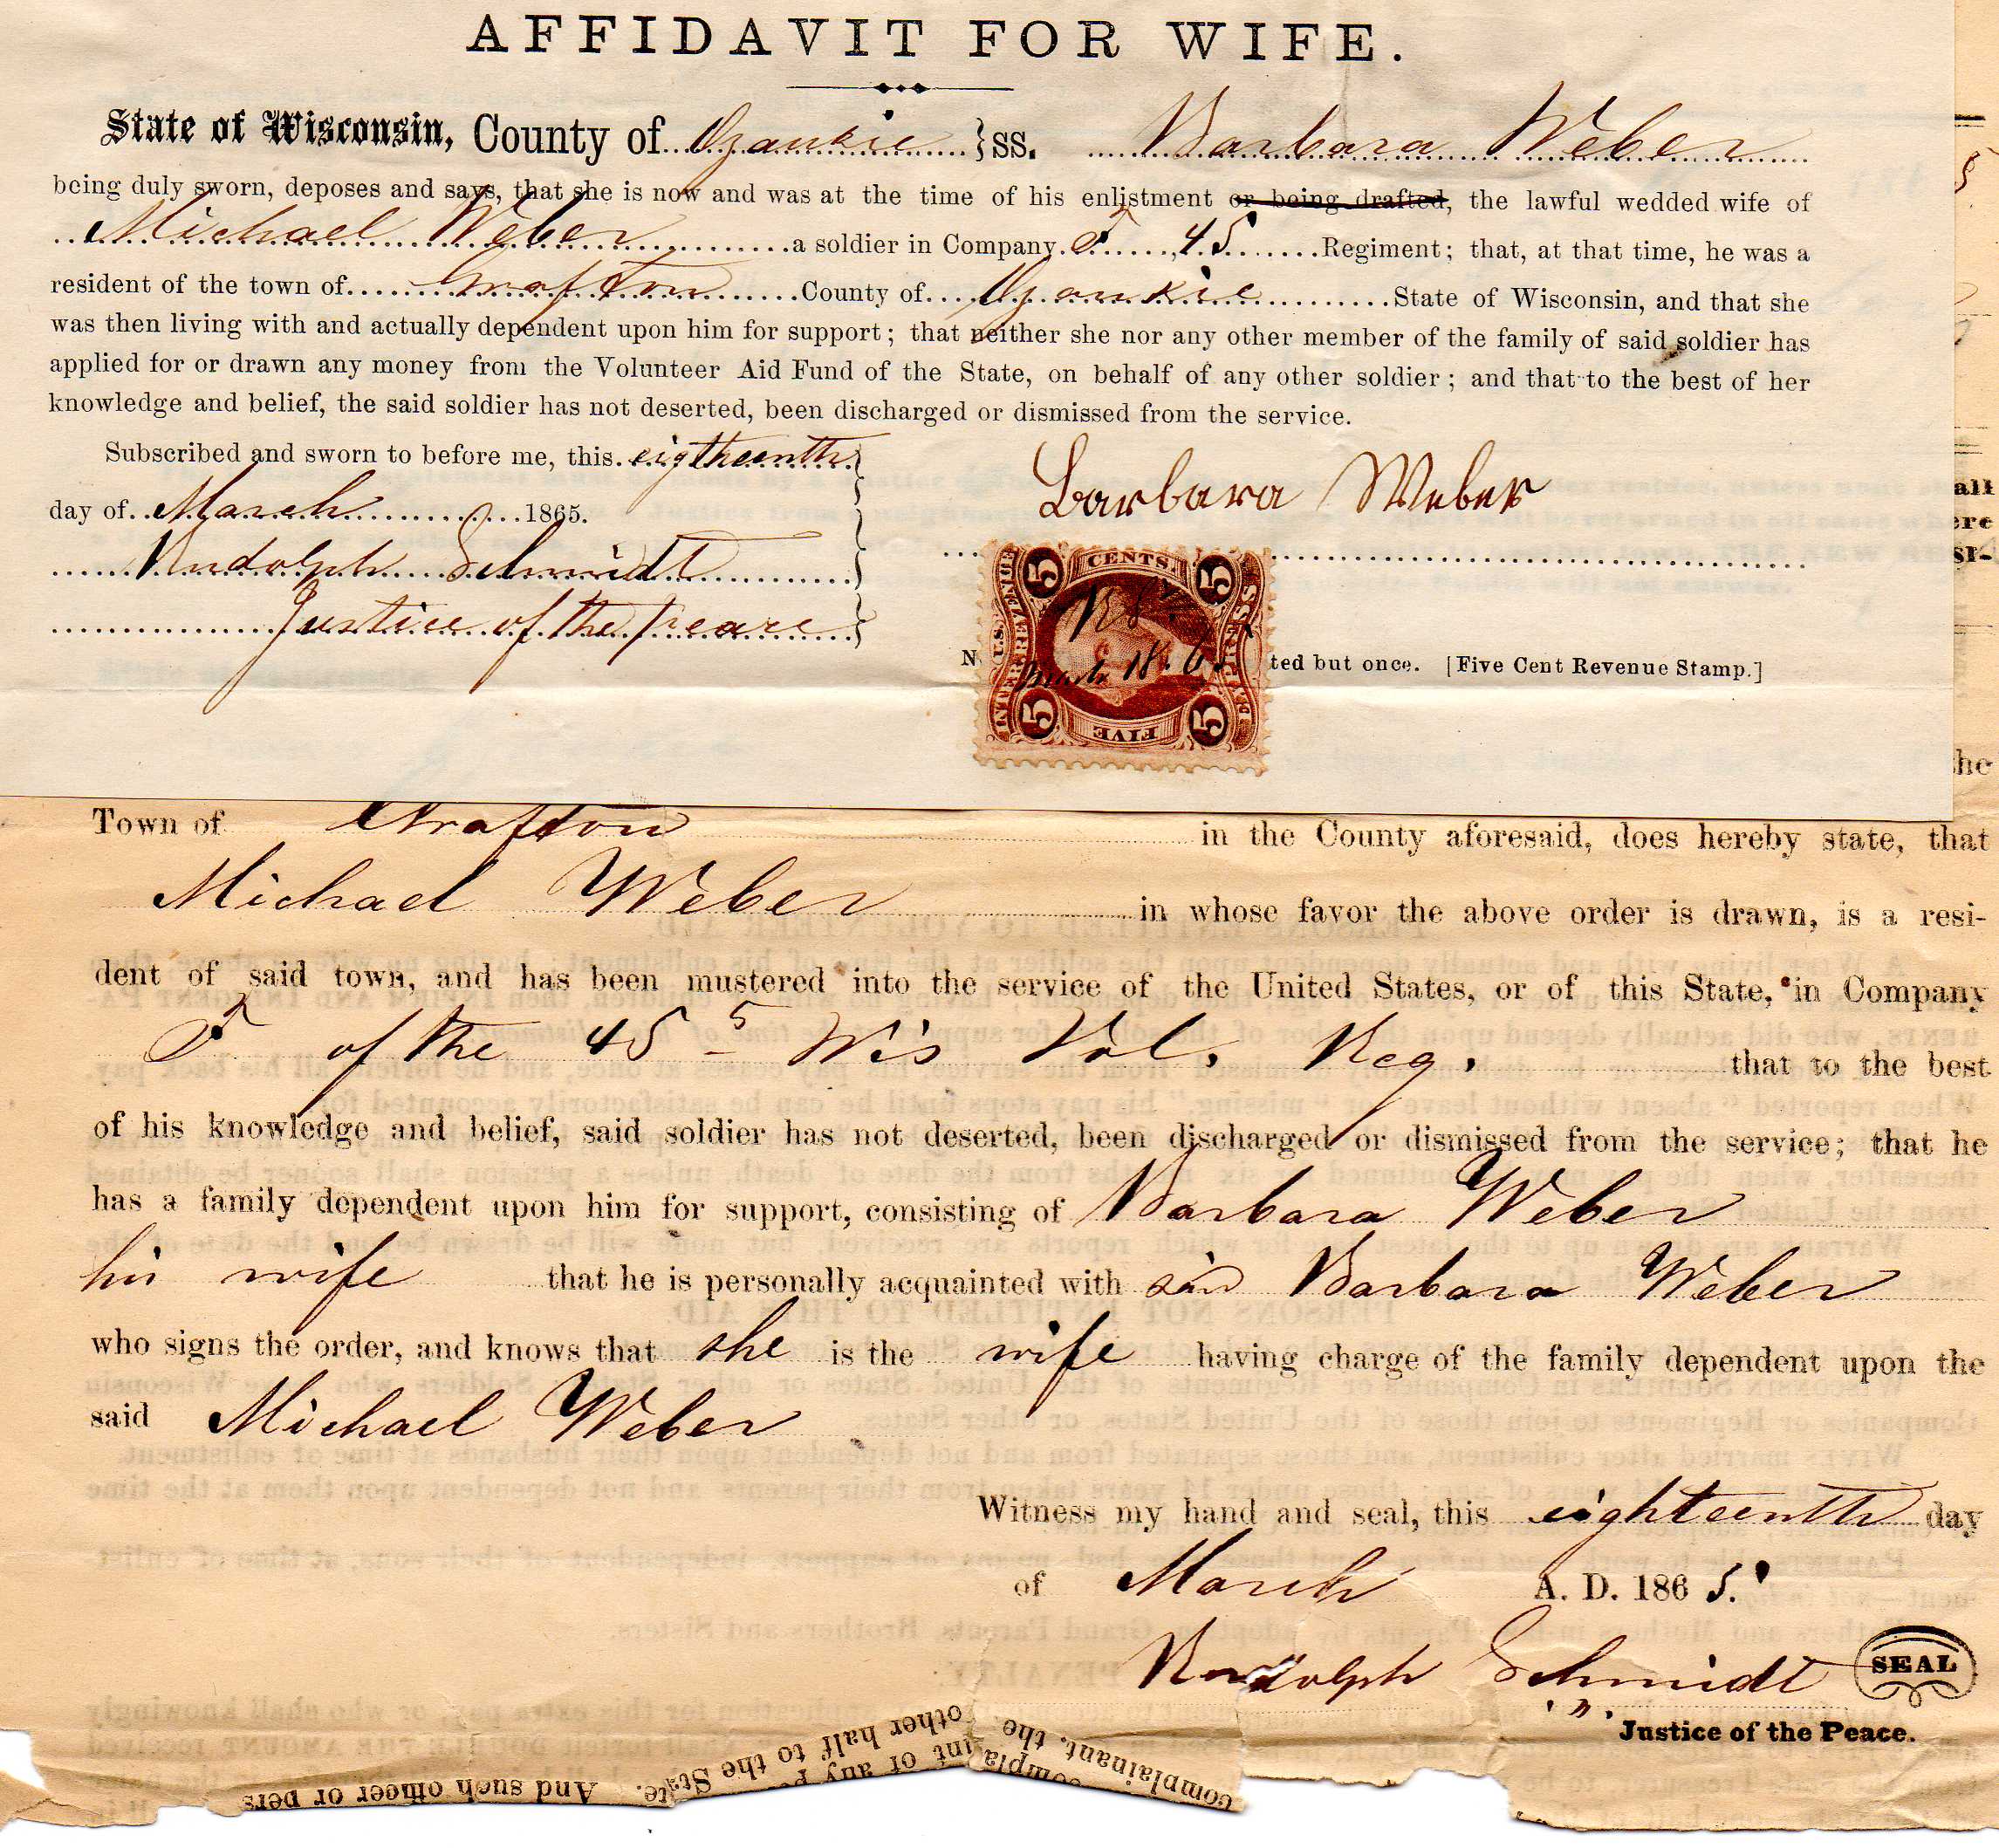 AFFIDAVIT FOR WIFE.
State of Wisconsin, County of Ozaukie } ss. Barbara Weber
being duly sworn, deposes and says, that she is now and was at the time of his enlistment or being drafted, the lawful wedded wife of
Michael Weber a soldier in Company F 45 Regiment; that, at that time, he was a
resident of the town of Grafton County of Ozaukie State of Wisconsin, and that she
was then living with and actually dependent upon him for support; that neither she nor any other member of the family of said soldier has
applied for or drawn any money from the Volunteer Aid Fund of the State, on behalf of any other soldier; and that to the best of her
knowledge and belief, the said soldier has not deserted, been discharged or dismissed from the service.
Subscribed and sworn to before me, this eigtheenth
day of March 1865.
Rudolph Schmidt
Justice of the peace
Barbara Weber
5 CENTS. 5
U.S. INTER. REVENUE EXPRESS
R S
March 18. 65
5 FIVE 5
N ted but once. [Five Cent Revenue Stamp.]
all
ere
si-
he
Town of Grafton in the County aforesaid, does hereby state, that
Michael Weber in whose favor the above order is drawn, is a resi-
dent of said town, and has been mustered into the service of the United States, or of this State, in Company
F of the 45 Wis Vol. Reg. that to the best
of his knowledge and belief, said soldier has not deserted, been discharged or dismissed from the service; that he
has a family dependent upon him for support, consisting of Barbara Weber
his wife that he is personally acquainted with said Barbara Weber
who signs the order, and knows that she is the wife having charge of the family dependent upon the
said Michael Weber
Witness my hand and seal, this eighteenth day
of March A. D. 1865.
Rudolph Schmidt SEAL
Justice of the Peace.
complainant, the
other half to the State.
And such officer or pers